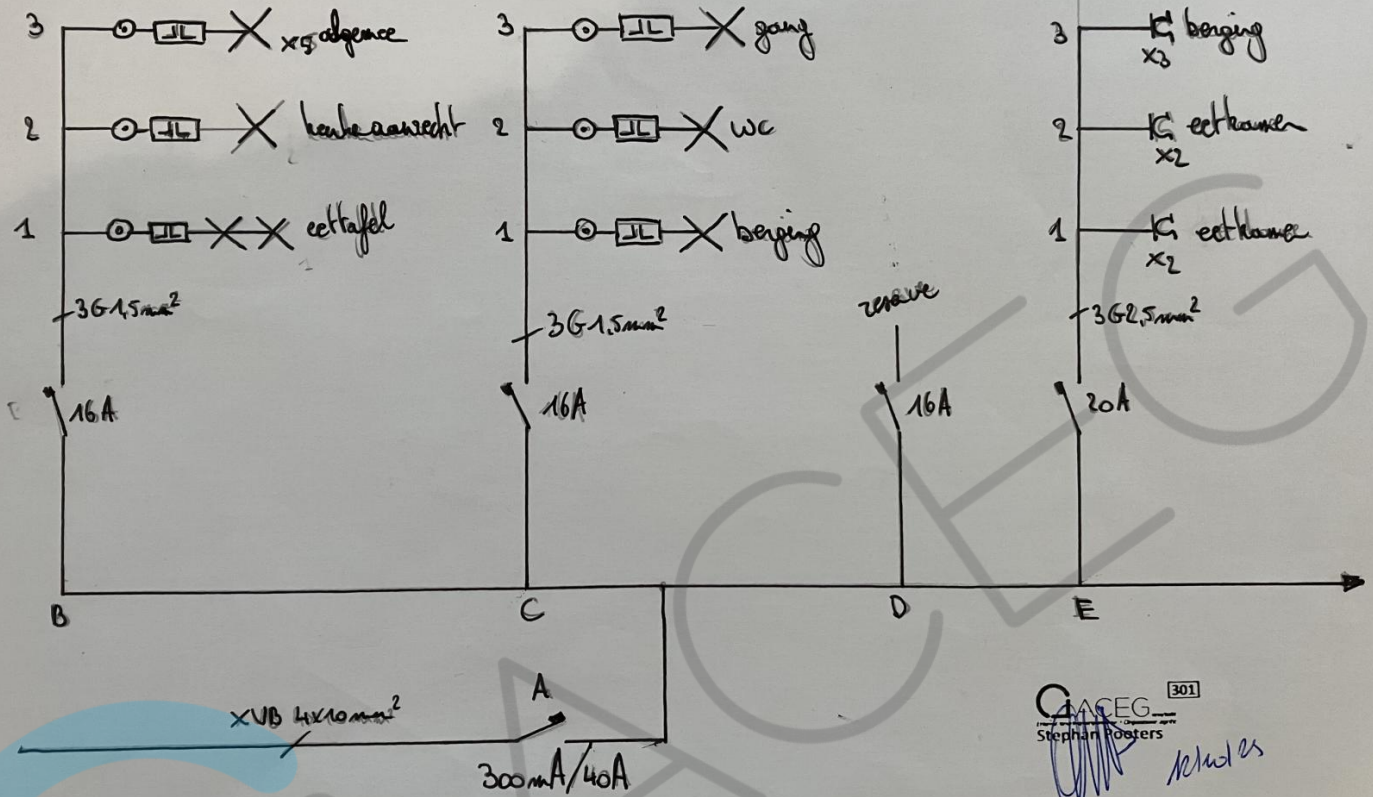 3 x5 algemee
2 keuken aanrecht
1 eettafel
3G1,5mm²
16A
B
3 gang
2 WC
1 berging
3G1,5mm²
16A
C
reserve
16A
D
3 x3 berging
2 x2 eetkamer
1 x2 eetkamer
3G2,5mm²
20A
E
XVB 4x10mm²
A
300mA/40A
ACEG
301
Stephan Pooters
ACEG